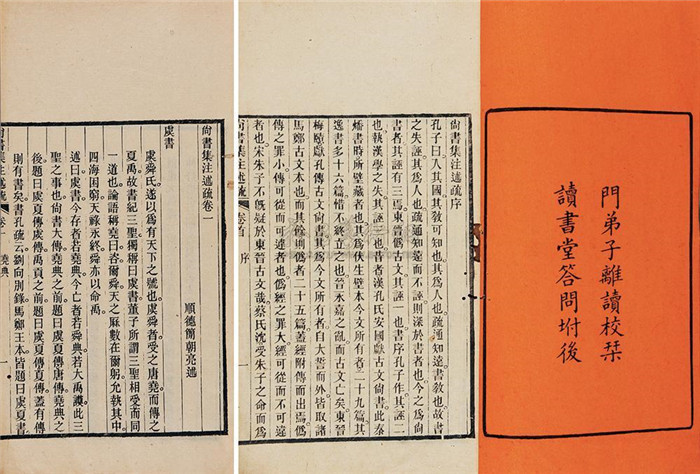 門弟子離讀校栞
讀書堂答問坿後
尚書集注述疏序
孔子曰入其國其教可知也其爲人也疏通知遠書教也故書
之失誣其爲人也疏通知遠而不誣則深於書者也今之爲尚
書者其誣有三焉東晉僞古文其誣一也書序孔子作其誣二
也執漢學之失其誣三也昔者漢孔氏安國獻古文尚書此秦
燔書時所壁藏者也其爲伏生壁本今文所有者二十九篇其
逸書多十六篇惜不終立之也晉永嘉之亂而古文亡矣東晉
梅賾獻孔傳古文尚書其爲今文所有者自大誓而外皆取諸
馬鄭古文本也而其餘則僞者二十五篇蓋經附傳而出焉僞
傳之罪小傳可從而可違者也僞經之罪大經可從而不可違
者也宋朱子不旣疑於東晉古文哉蔡氏沈受朱子之命而爲
尚書集注述疏 卷首 序
尚書集注述疏卷一
順德簡朝亮述
虞書
虞舜氏遂以爲有天下之號也虞舜者受之唐堯而傳之
夏禹故書紀三聖獨稱曰虞書董子所謂三聖相受而同
一道也論語稱堯曰咨爾舜天之厤數在爾躬允執其中
四海困窮天祿永終舜亦以命禹
述曰虞書今存者若堯典今亡者若舜典若大禹謨此三
聖之事也尚書大傳堯典之前題曰虞夏傳唐傳堯典之
後題曰虞夏傳虞傳禹貢之前題曰虞夏傳夏傳蓋有傳
則有書矣書孔疏云劉向別錄馬鄭王本皆題曰虞夏書
尚書集注述疏 卷一 堯典 一